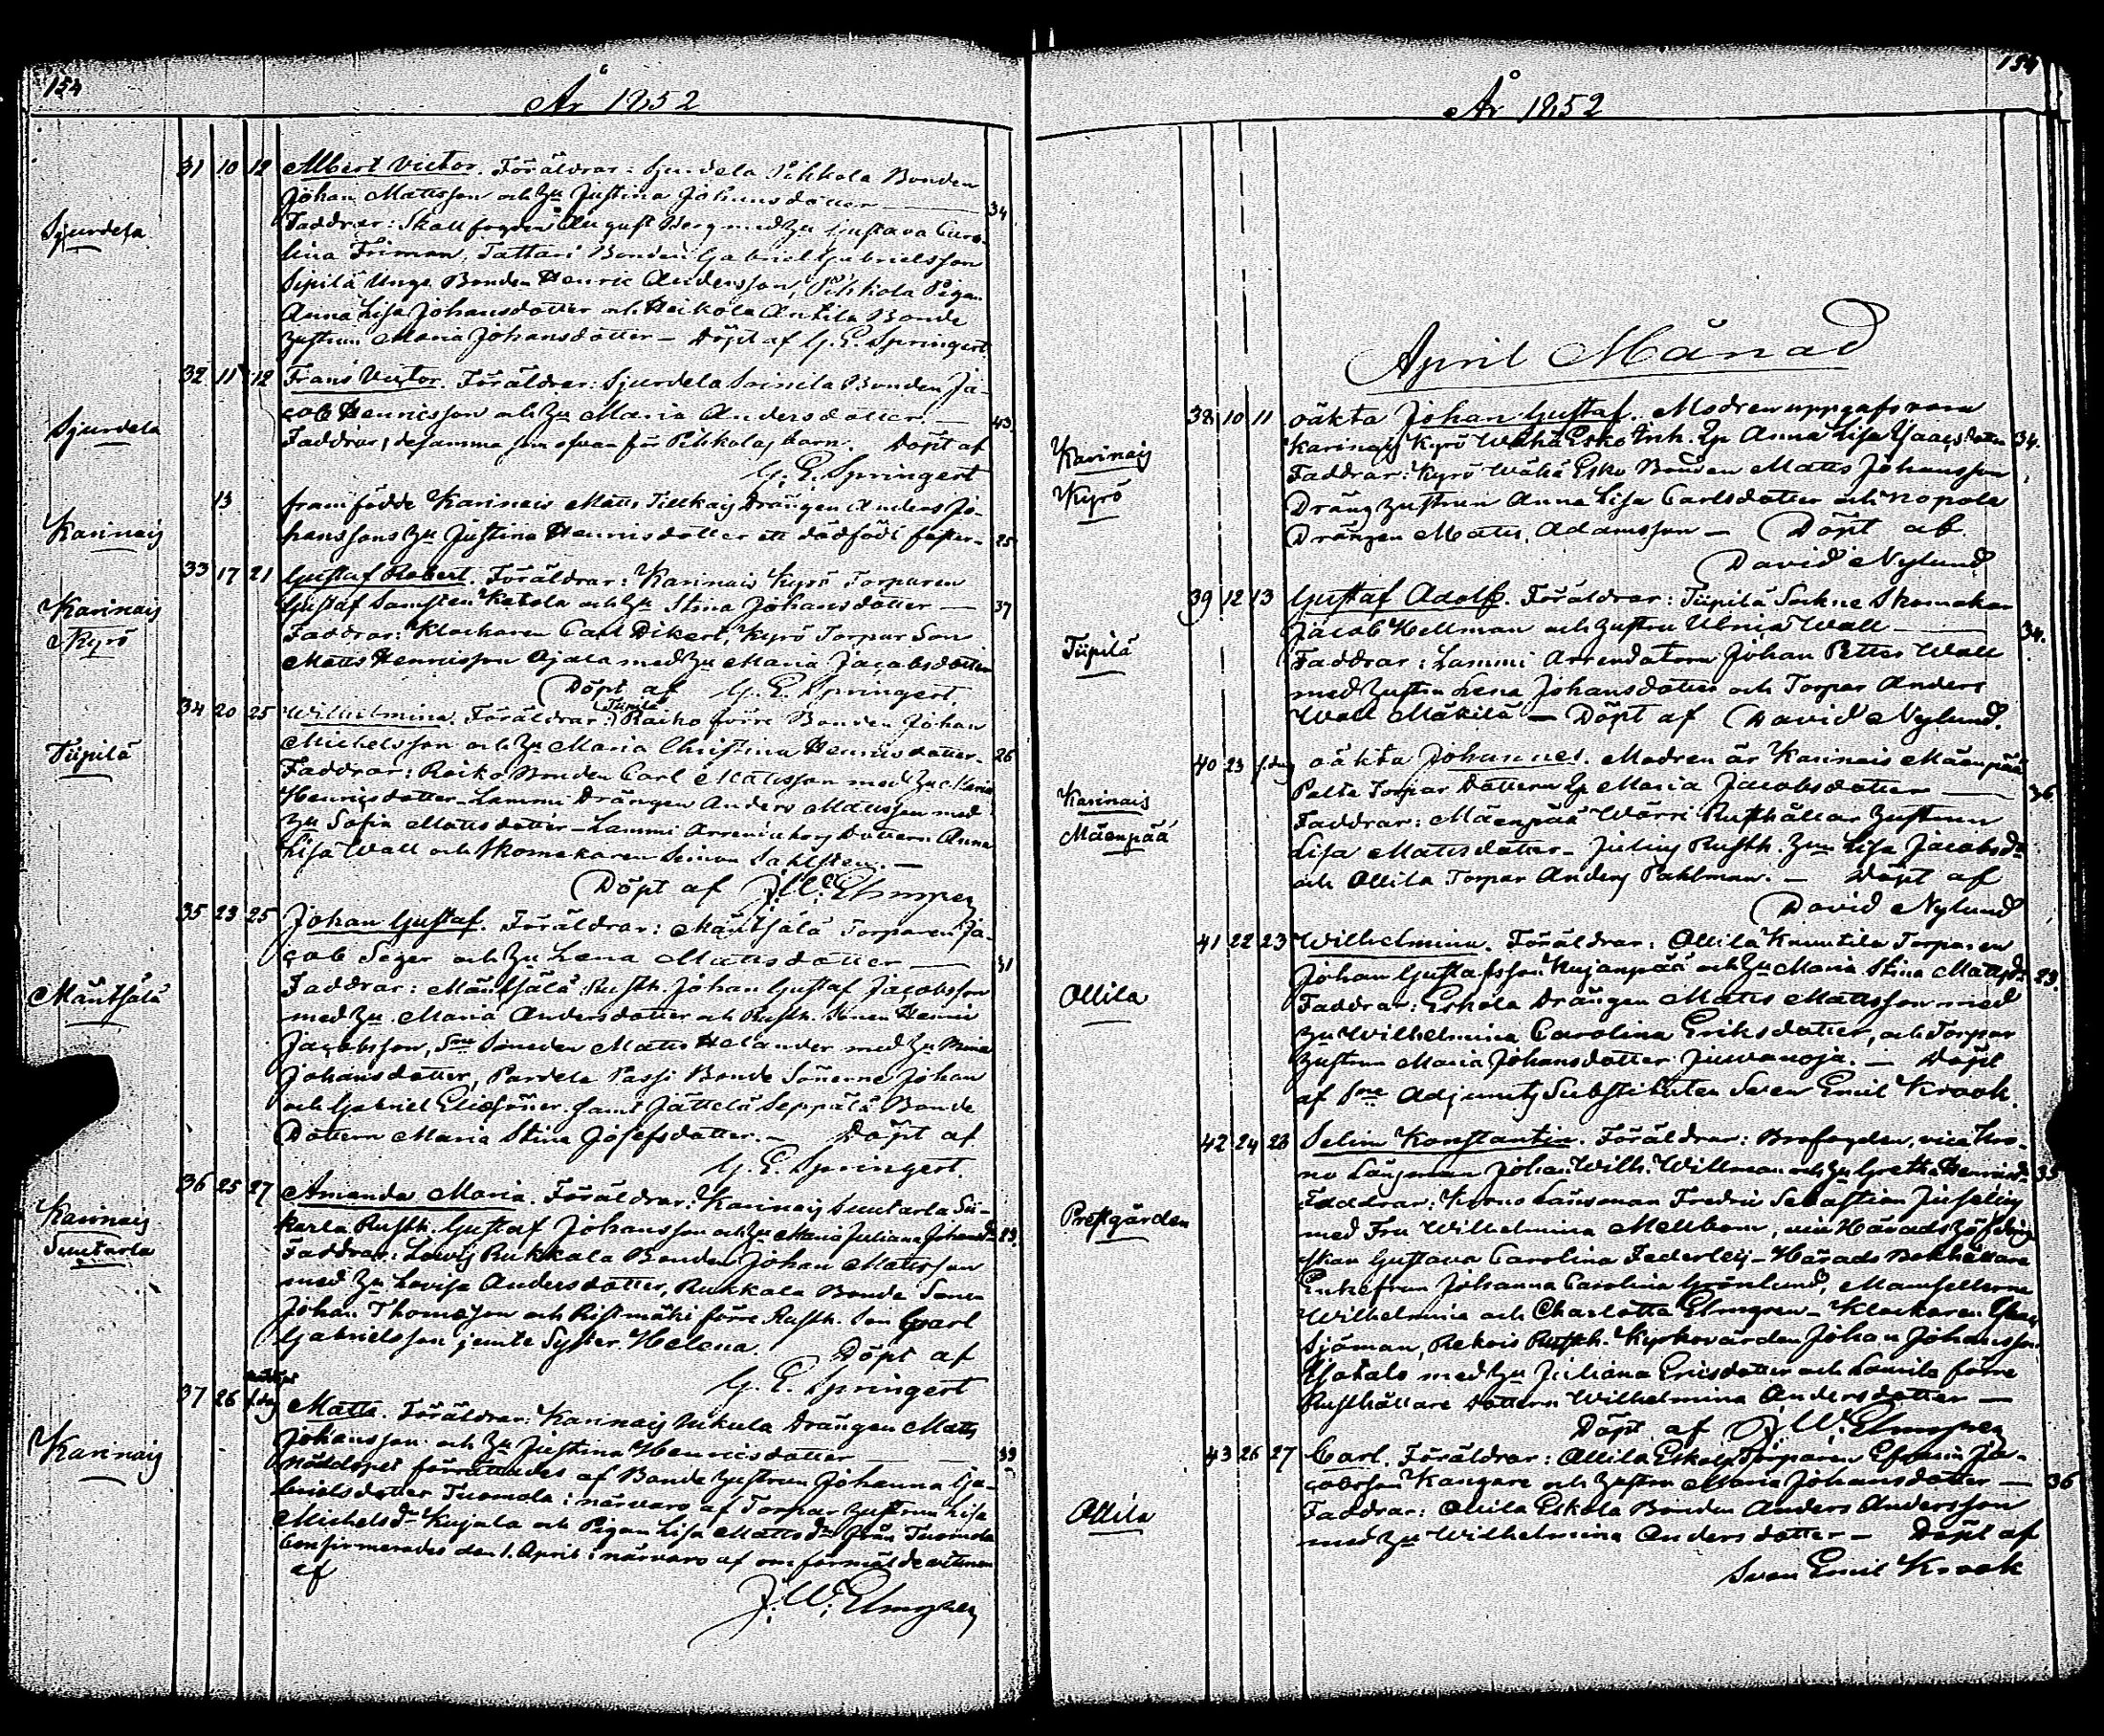 154
År 1852
31 10 12 Albert Victor. Föräldrar: Sjurdela Pihkola Bonden
Johan Mattsson och Hu Justina Johansdotter — 34
Sjurdela
Faddrar: Skallfogden August Berg med Hu Gustava Caro-
lina Friman, Tattari Bonden Gabriel Gabrielsson
Sipilä Unge Bonden Henric Andersson, Pihkola Pigan
Anna Lisa Johansdotter och Heikola Antila Bonde
hustrun Maria Johansdotter — Döpt af G. E. Springert
32 11 12 Frans Victor. Föräldrar: Sjurdela Sinila Bonden Ja-
Sjurdela
cob Henricsson och Hu Maria Andersdotter. — 43
Faddrar, desamma som ofvan för Pihkolas barn. Döpt af
G. E. Springert
13 framfödde Karinais Matts Tillkas Drängen Anders Jo-
Karinais
hanssons Hu Justina Henricsdotter ett dödfödt foster. 25
33 17 21 Gustaf Robert. Föräldrar: Karinais Kyrö Torparen
Karinais
Gustaf Samsten Ketola och Hu Stina Johansdotter — 37
Kyrö
Faddrar: Klockaren Carl Dikert, Kyrö Torpar Son
Matts Henricsson Ajala med Hu Maria Jacobsdotter
Döpt af G. E. Springert
34 20 25 Wilhelmina. Föräldrar: Tiipilä Raiko förre Bonden Johan
Tiipilä
Michelsson och Hu Maria Christina Henricsdotter. 26
Faddrar: Raiko Bonden Carl Mattsson med Hu Maria
Henricsdotter — Lammi Drängen Anders Mattsson med
Hu Sofia Mattsdotter — Lammi Arrendators Dottern Anna
Lisa Wall och Skomakaren Simon Sahlsten. —
Döpt af J. W. Elmgren
35 23 25 Johan Gustaf. Föräldrar: Mäntsälä Torparen Ja-
cob Seger och Hu Lena Mattsdotter — 31
Mäntsälä
Faddrar: Mäntsälä Rusth. Johan Gustaf Jacobsson
med Hu Maria Andersdotter och Rusth. Sonen Henric
Jacobsson, Smeden Matts Helander med Hu Maria
Johansdotter, Pardela Passi Bonde Sönerne Johan
och Gabriel Eliesöner samt Jättelä Seppälä Bonde
Dottern Maria Stina Josefsdotter. — Döpt af
G. E. Springert
36 25 27 Amanda Maria. Föräldrar: Karinais Suutarla Sii-
Karinais
karla Rusth. Gustaf Johansson och Hu Maria Juliana Johansdr 29.
Suutarla
Faddrar: Rukkala Bonden Johan Mattsson
med Hu Lovisa Andersdotter, Rukkala Bonde Sonen
Johan Thomasson och Ristmäki förre Rusth. Son Carl
Gabrielsson jemte Syster Helena. Döpt af
G. E. Springert
37 26 s.dag Matts. Föräldrar: Karinais Nikula Drängen Matts
Karinais
Johansson och Hu Justina Henricsdotter — 33
Nöddopet förrättades af Bonde hustrun Johanna Ga-
brielsdotter Tuomola i närvaro af Torpar hustrun Lisa
Michelsdr Kujala och Pigan Lisa Mattsdr från Tuomola
Confirmerades den 1. April i närvaro af omförmälde vittnen
af
J. W. Elmgren
154
År 1852
April Månad
38 10 11 oäkta Johan Gustaf. Modren uppgafs vara
Karinais
Karinais Kyrö Wähä Esko Inh. Qp Anna Lisa Isaacsdotter 34.
Kyrö
Faddrar: Kyrö Wähä Esko Bonden Matts Johansson
Dräng hustrun Anna Lisa Carlsdotter och Nopola
Drängen Matts Adamsson — Döpt af
David Nylund
39 12 13 Gustaf Adolf. Föräldrar: Tiipilä Sockne Skomakar
Jacob Hellman och hustru Ulrica Wall — 34.
Tiipilä
Faddrar: Lammi Arrendatorn Johan Petter Wall
med hustru Lena Johansdotter och Torpar Anders
Wall Mäkilä — Döpt af David Nylund.
40 23 s.dag oäkta Johannes. Modren är Karinais Mäenpää
Karinais
Palta Torpar Dottern Qp Maria Jacobsdotter — 36
Mäenpää
Faddrar: Mäenpää Wärri Rusthållar hustrun
Lisa Mattsdotter — Julius Rusth. Hun Lisa Jacobsdr
och Ollila Torpar Anders Pahlman. — Döpt af
David Nylund
41 22 23 Wilhelmina. Föräldrar: Ollila Knuutila Torparen
Johan Gustafsson Kujanpää och Hu Maria Stina Mattsdr 29.
Ollila
Faddrar: Eskola Drängen Matts Mattsson med
Hu Wilhelmina Carolina Eriksdotter, och Torpar
hustrun Maria Johansdotter Juvanoja. — Döpt
af Adjuncts Substituten Sven Emil Krook.
42 24 28 Selim Konstantin. Föräldrar: Brofogden, vice Kro-
no Länsman Johan Wilh. Willman och Hu Greta Henricsdr 35
Prestgården
Faddrar: Krono Länsman Fredric Sebastian Juselius
med Fru Wilhelmina Mellbom, vice Häradshöfding-
skan Gustava Carolina Federley — Härads Bokhållare
Enkefrun Johanna Carolina Grönlund, Mamsellerne
Wilhelmina och Charlotta Elmgren — Klockaren
Sjöman, Rekois Rusth. Kyrkovärden Johan Johansson
Isotalo med Hu Juliana Ericsdotter och Laurila förre
Rusthållare Dottern Wilhelmina Andersdotter —
Döpt af J. W. Elmgren
43 26 27 Carl. Föräldrar: Ollila Eskola Torparen Efraim Ja-
cobsson Kangare och hustru Maria Johansdotter — 36
Ollila
Faddrar: Ollila Eskola Bonden Anders Andersson
med Hu Wilhelmina Andersdotter — Döpt af
Sven Emil Krook